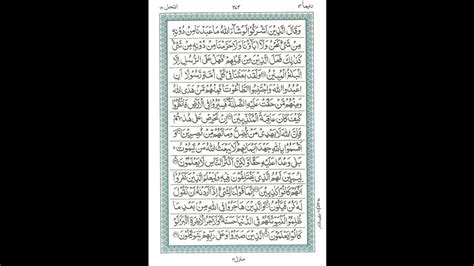 ربما ١٤ النحل ١٦
وَقَالَ الَّذِيْنَ اَشْرَكُوْا لَوْ شَآءَ اللّٰهُ مَا عَبَدْنَا مِنْ دُوْنِهٖ
مِنْ شَيْءٍ نَّحْنُ وَلَآ اٰبَآؤُنَا وَلَا حَرَّمْنَا مِنْ دُوْنِهٖ مِنْ شَيْءٍ
كَذٰلِكَ فَعَلَ الَّذِيْنَ مِنْ قَبْلِهِمْ فَهَلْ عَلَى الرُّسُلِ اِلَّا
الْبَلٰغُ الْمُبِيْنُ وَلَقَدْ بَعَثْنَا فِيْ كُلِّ اُمَّةٍ رَّسُوْلًا اَنِ
اعْبُدُوا اللّٰهَ وَاجْتَنِبُوا الطَّاغُوْتَ فَمِنْهُمْ مَّنْ هَدَى اللّٰهُ
وَمِنْهُمْ مَّنْ حَقَّتْ عَلَيْهِ الضَّلٰلَةُ فَسِيْرُوْا فِي الْاَرْضِ فَانْظُرُوْا
كَيْفَ كَانَ عَاقِبَةُ الْمُكَذِّبِيْنَ اِنْ تَحْرِصْ عَلٰى هُدٰىهُمْ
فَاِنَّ اللّٰهَ لَا يَهْدِيْ مَنْ يُّضِلُّ وَمَا لَهُمْ مِّنْ نّٰصِرِيْنَ
وَاَقْسَمُوْا بِاللّٰهِ جَهْدَ اَيْمَانِهِمْ لَا يَبْعَثُ اللّٰهُ مَنْ يَّمُوْتُ
بَلٰى وَعْدًا عَلَيْهِ حَقًّا وَّلٰكِنَّ اَكْثَرَ النَّاسِ لَا يَعْلَمُوْنَ
لِيُبَيِّنَ لَهُمُ الَّذِيْ يَخْتَلِفُوْنَ فِيْهِ وَلِيَعْلَمَ الَّذِيْنَ كَفَرُوْا
اَنَّهُمْ كَانُوْا كٰذِبِيْنَ اِنَّمَا قَوْلُنَا لِشَيْءٍ اِذَآ اَرَدْنٰهُ اَنْ نَّقُوْلَ
لَهٗ كُنْ فَيَكُوْنُ وَالَّذِيْنَ هَاجَرُوْا فِي اللّٰهِ مِنْ بَعْدِ مَا
ظُلِمُوْا لَنُبَوِّئَنَّهُمْ فِي الدُّنْيَا حَسَنَةً وَلَاَجْرُ الْاٰخِرَةِ اَكْبَرُ لَوْ
كَانُوْا يَعْلَمُوْنَ الَّذِيْنَ صَبَرُوْا وَعَلٰى رَبِّهِمْ يَتَوَكَّلُوْنَ
منزل ٣